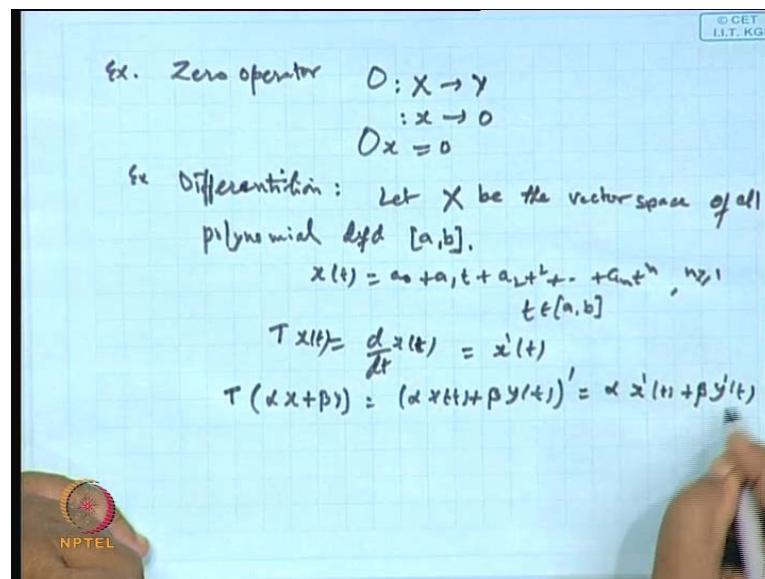 © CET
I.I.T. KG
Ex. Zero operator O : X → Y
: x → 0
Ox = 0
Ex Differentition : Let X be the vector space of all
polynomial dyd [a,b].
x(t) = a₀ + a₁t + a₂t² + .. + aₙtⁿ, n≥1
t ∈ [a,b]
T x(t) = d/dt x(t) = x'(t)
T (αx+βy) = (αx(t)+βy(t))' = α x'(t) + β y'(t)
NPTEL